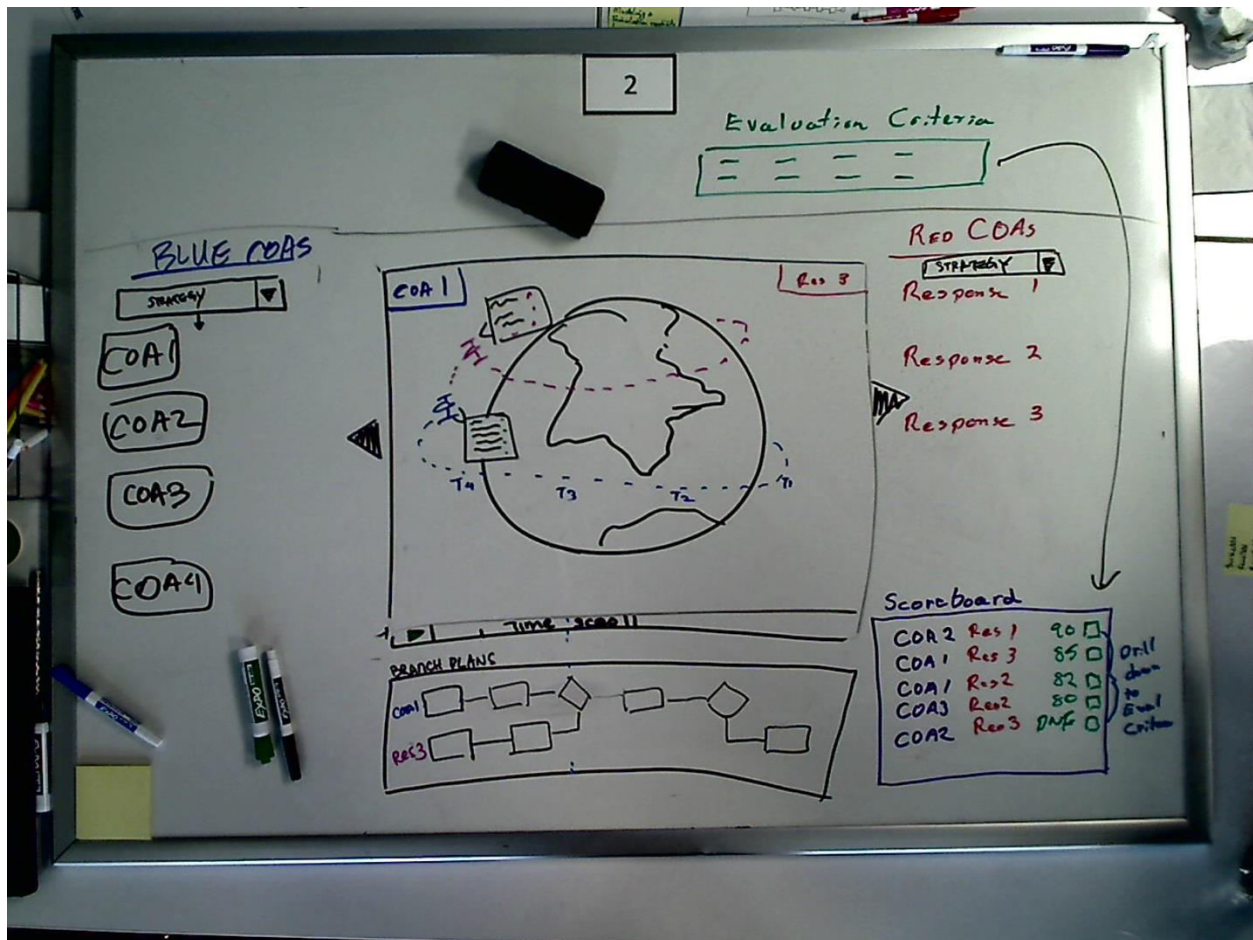 2
Evaluation Criteria
BLUE COAS
STRATEGY
COA1
COA2
COA3
COA4
COA 1
Res 3
T4
T3
T2
T1
Time scroll
RED COAs
STRATEGY
Response 1
Response 2
Response 3
BRANCH PLANS
COA1
Res3
Scoreboard
COA2 Res 1 90
COA1 Res 3 85
COA1 Res2 82
COA3 Res2 80
COA2 Res3 DNF
Drill
down
to
Eval
Criteria
EXPO